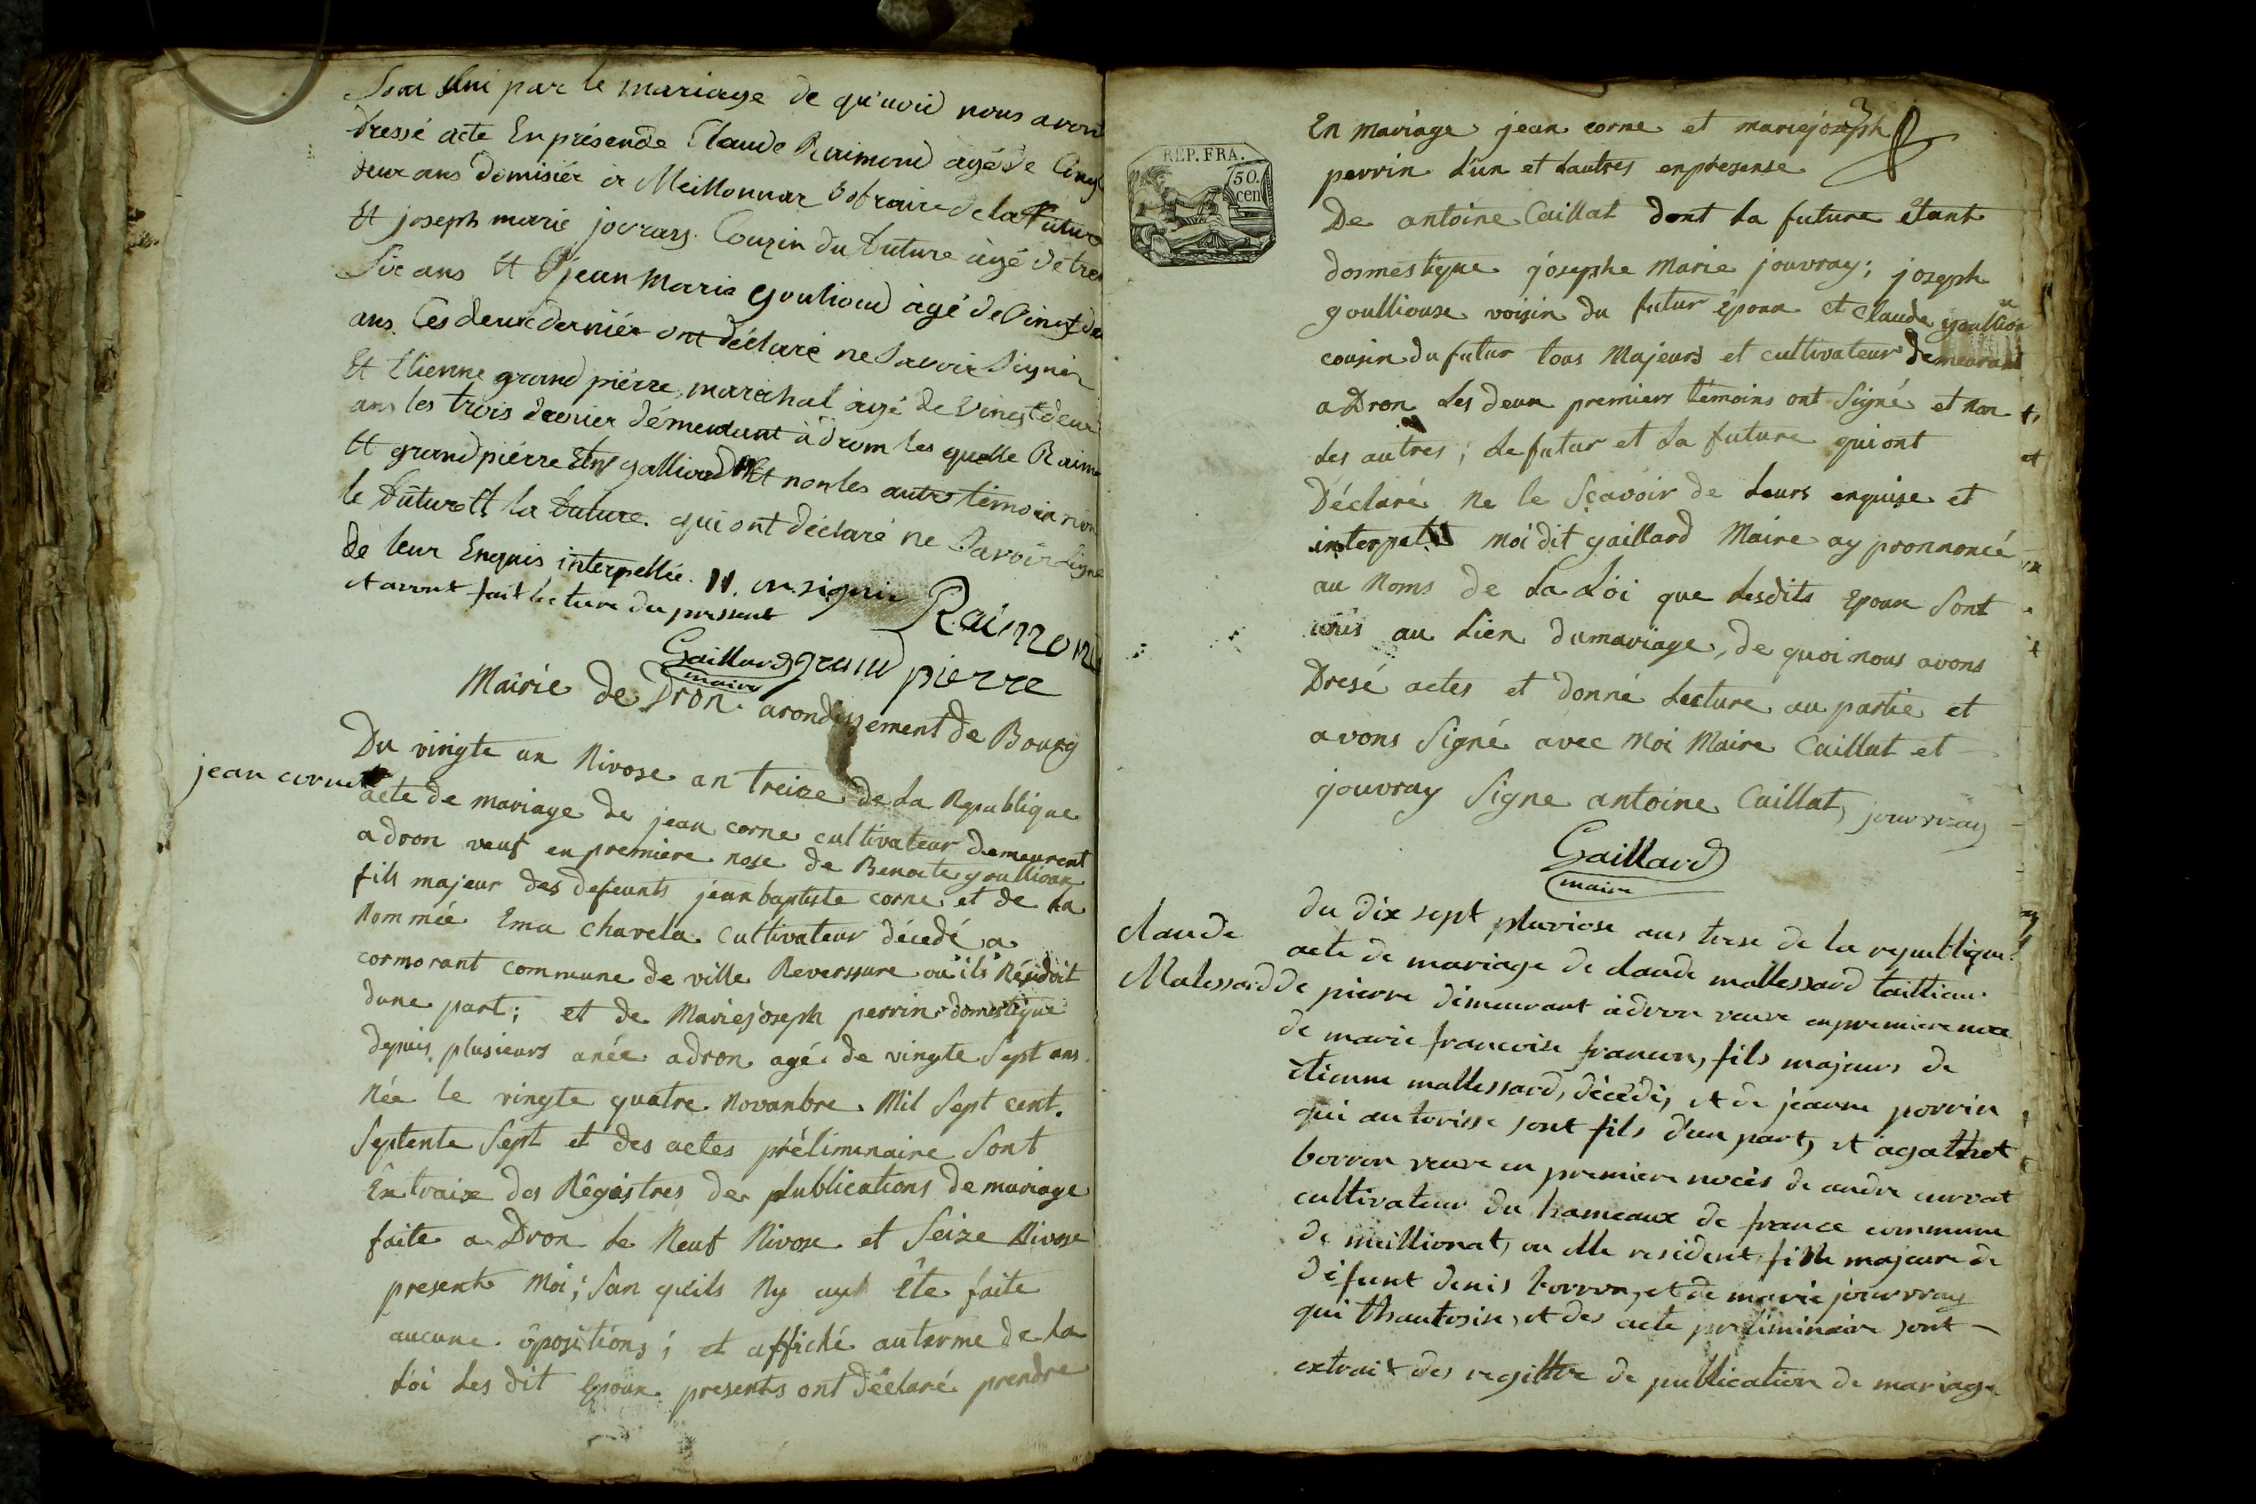 Son Uni par le mariage de qu'uoid nous avon
dressé acte En présende Claude Raimond agé de Cinq
deux ans domisiér a Meillonnar de la future
Et joseph marie jovray. Couzin du future agé de tren
Six ans Et jean Marie Goulioud agé de Vinqt de
ans. Ces deux derniér ont déclaré ne Savoir Signer
Et Etienne grand piérre, marechal agé de Vinqt deux
ans les trois dernier démeurant a drom les quelle Raimo
Et grand piérre Et non les autre témoin non
le future Et la future. qui ont déclaré ne Savoir Signe
de leur Enquis interpellée. 11. on signer
et avont fait lecture du present
Raimond
Gaillard grand pierre
maire
Mairie de Dron. arondissement de Bourg
jean cornet
Du vingte un Nivose an treize de La Republique
acte de mariage de jean corne cultivateur demeurent
a dron veuf en premiere nose de Benoite goullioux
fils majeur des defeunts jean baptiste corne et de La
Nommée Ema Chavela Cultivateur décedé a
cormorant commune de ville Reverssure ou ils Résidoit
dune part; et de Mariejoseph perrin domestique
depuis plusieurs anée adron agé de vingte Sept ans
Née le vingte quatre Novanbre Mil Sept cent.
Septente Sept et des actes préliminaire Sont
Extraix des Régistres de publications de mariage
faite a Dron Le Neuf Nivose et Seize Nivose
presente Moi; San qu'ils Ny ayt Ete faite
aucune ôpositions; et affiché au terme de La
Loi Les dit Epoux presents ont déclaré prendre
REP. FRA.
50.
cen
En mariage jean corne et mariejoseph
perrin L'un et Lautres enpresense
De antoine Caillat dont La future étant
domestique josephe Marie jouvray; joseph
goulliouse voisin du futur Epoux et Claude goulliou
cousin du futur tous Majeurs et cultivateur demeurant
a Dron Les deux premiers témoins ont Signé et non
Les autres; Le futur et La future qui ont
Déclaré Ne le Sçavoir de Leurs enquise et
interpelé moi dit gaillard Maire ay pronnoncé
au Noms de La Loi que Lesdits Epoux Sont
unis au Lien dumariage, de quoi nous avons
Dresé actes et donné Lecture au partie et
avons Signé avec Moi Maire Caillat et
jouvray Signe antoine Caillat, jouvray
Gaillard
maire
claude
Malessard
du dix sept pluviose ans trese de la republique
acte de mariage de claude mallessard taillieur
de pierre démeurant àdron veuve en premiere noce
de marie francoise francon, fils majeurs de
etienne mallessard, décédé, et de jeanne perrin
qui autorisse sont fils d'un part, et agathe
borron veuve en premiere nocés de andre currat
cultivateur du hameaux de france commune
de meillionat, ou elle resident fille majeure de
défunt denis borron, et de marie jouvray
qui Lhautosise, et des acte preliminaire sont
extrait des registre de publication de mariage